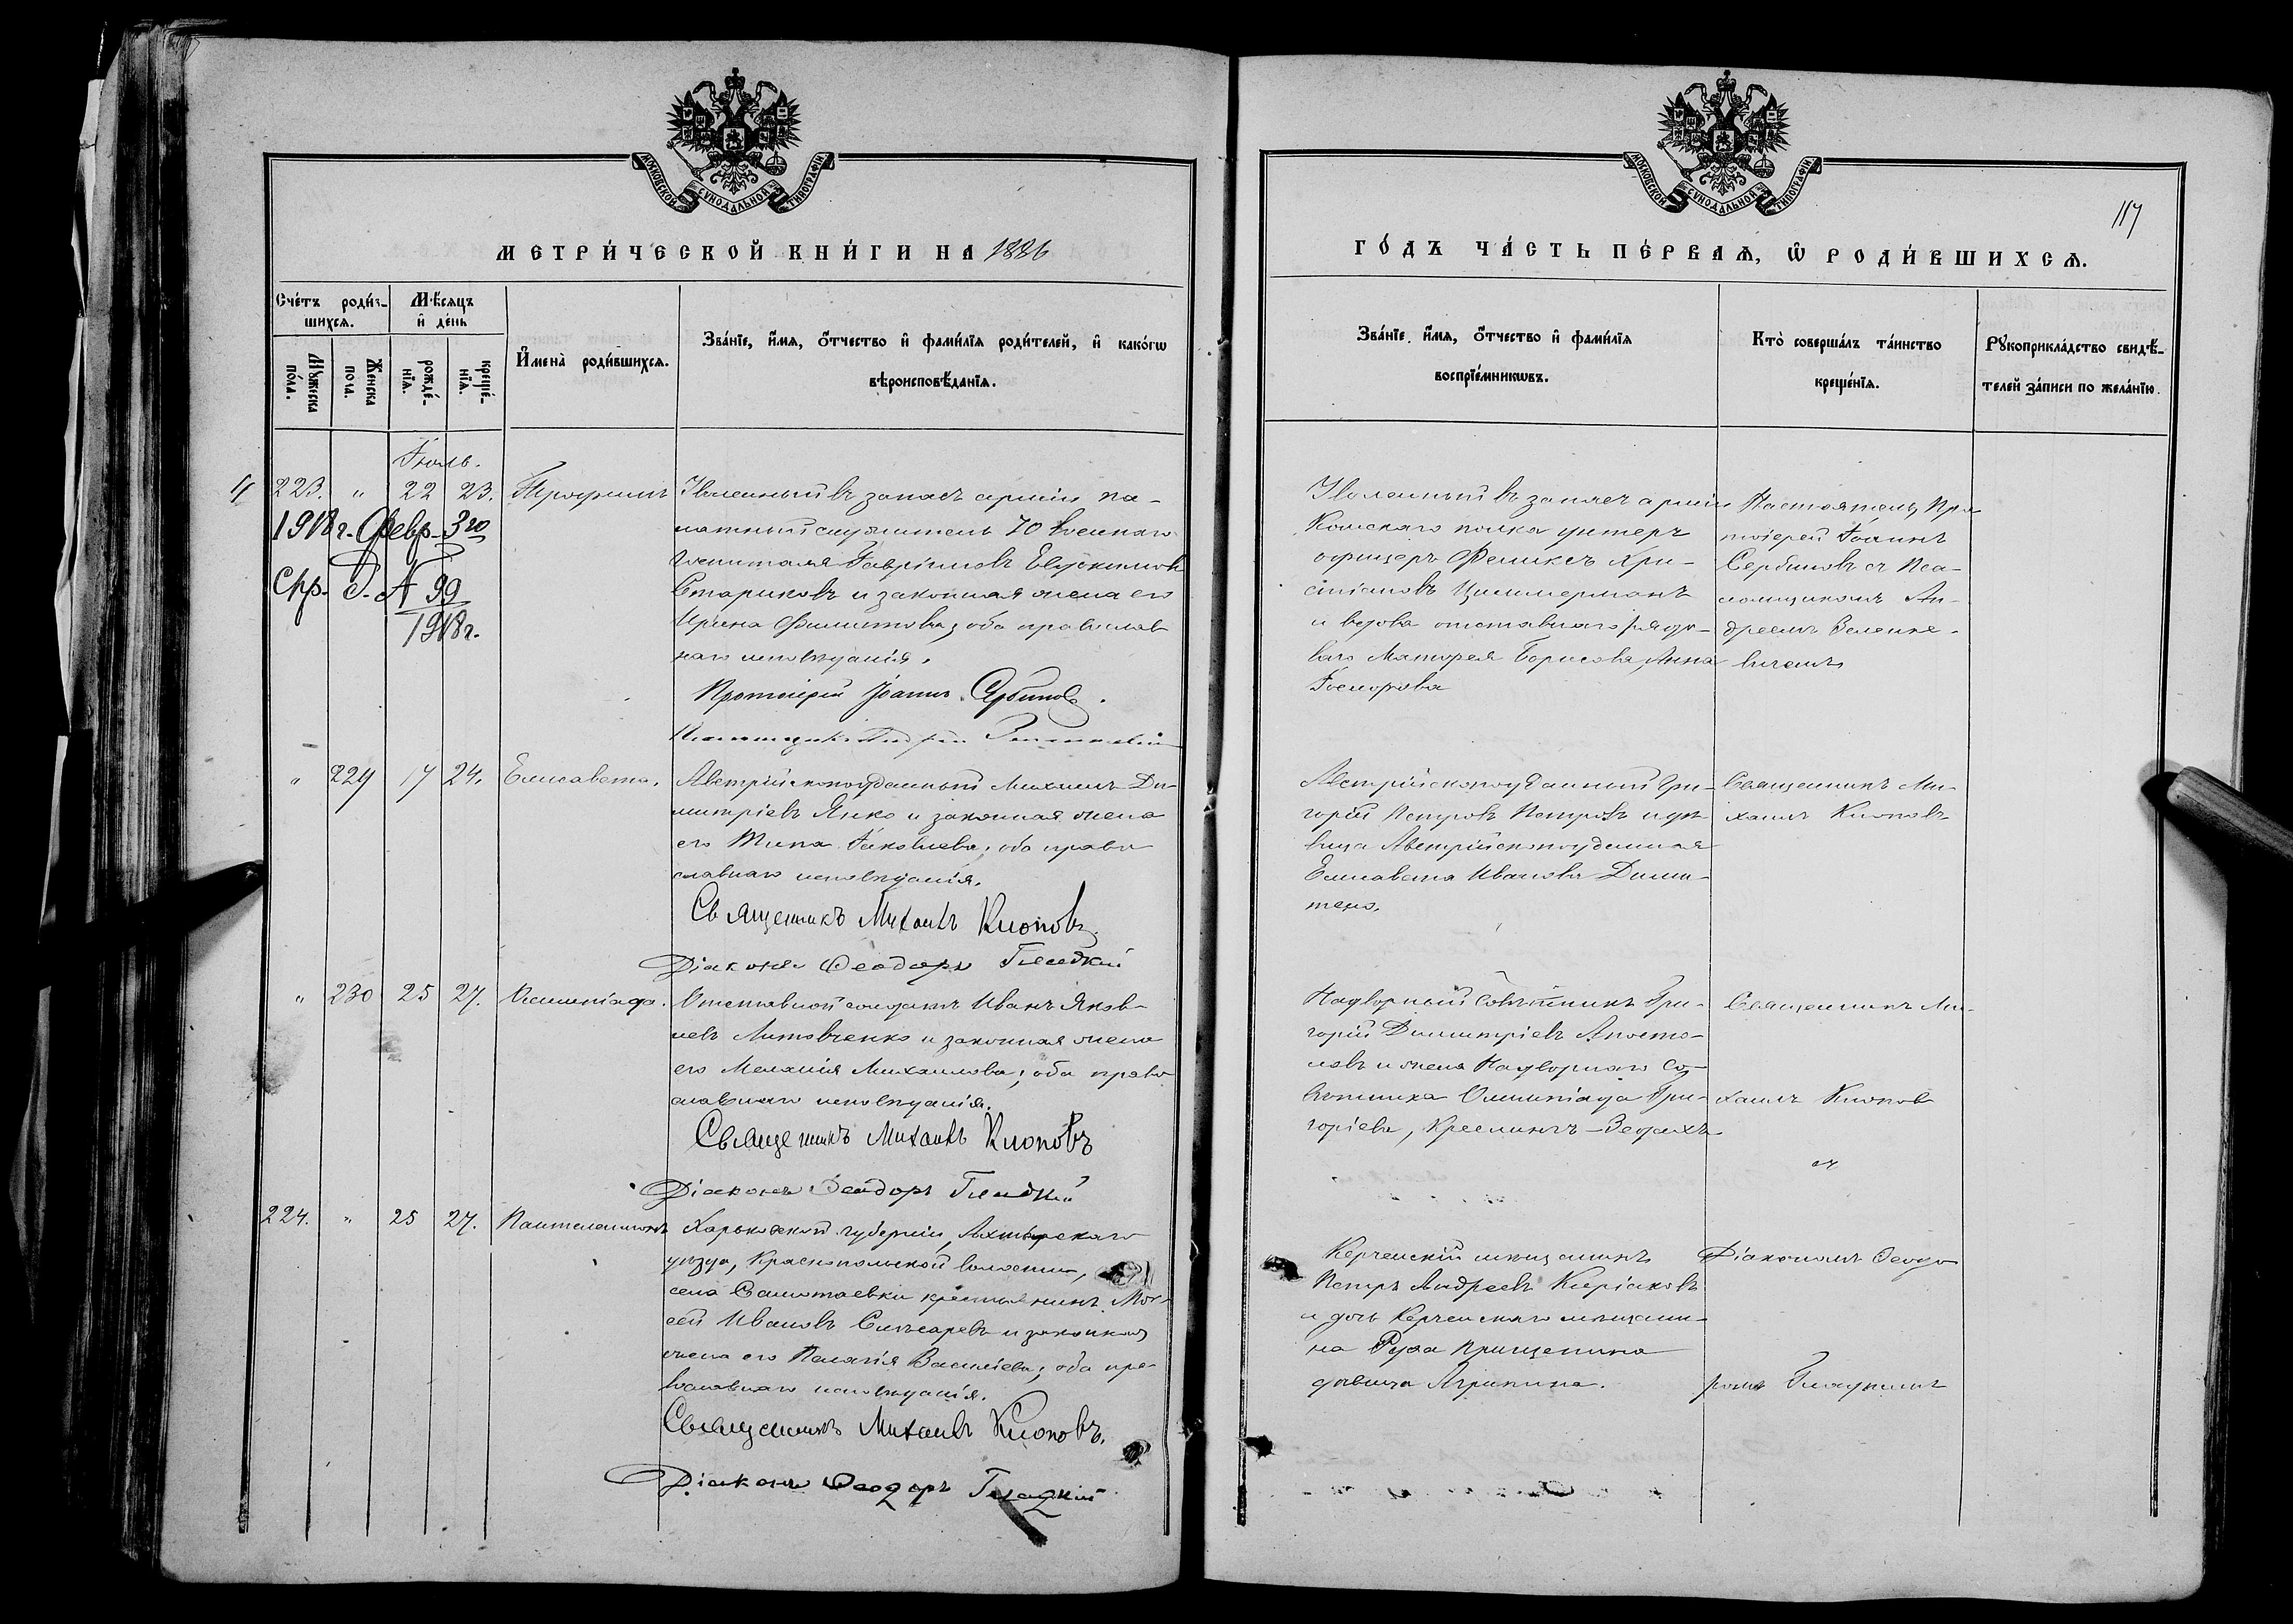 МОСКОВСКОЙ СѴНОДАЛЬНОЙ ТИПОГРАФІИ
МЕТРИ́ЧЕСКОЙ КНИ́ГИ НА 1886
Сче́тъ роди́в-
шихсѧ.
Мѣ́сѧцъ
и҆ де́нь
Мꙋ́жеска
по́ла.
Же́нска
пола.
рожде́-
нїѧ.
креще́-
нїѧ.
И҆мена̀ роди́вшихсѧ.
Зва́нїе, и҆́мѧ, ѻ҆́тчество и҆ фами́лїѧ роди́телей, и҆ како́гѡ
вѣроисповѣ́данїѧ.
Іюль.
223. " 22 23. Трофимъ
1918 г. Февр. 3го
Спр. № 99
1918 г.
Уволенный въ запасъ арміи па-
латный служитель 70 военнаго
госпиталя Гавріилъ Евдокимовъ
Стариковъ и законная жена его
Ирина Филиппова; оба православ
наго исповѣданія.
Протоіерей Іоаннъ Сербиновъ.
Псаломщикъ Андрей
" 229 17 24. Елисавета.
Австрійскоподданный Михаилъ Ди-
митріевъ Янко и законная жена
его Іаковлева; оба право
славнаго исповѣданія.
Священникъ Михаилъ Клоповъ.
Діаконъ Ѳеодоръ Гладкій
" 230 25 27. Олимпіада.
Отставной солдатъ Иванъ Яков-
левъ Литовченко и законная жена
его Меланія Михаилова; оба право
славнаго исповѣданія.
Священникъ Михаилъ Клоповъ
Діаконъ Ѳеодоръ Гладкій
224. " 25 27. Пантелеимонъ
Харьковской губерніи, Ахтырскаго
уѣзда, Краснопольской волости,
села Самотаевки крестьянинъ Мои-
сей Ивановъ Слѣсаревъ и законная
жена его Пелагія Васильева; оба пра-
вославнаго исповѣданія.
Священникъ Михаилъ Клоповъ.
Діаконъ Ѳеодоръ Гладкій
МОСКОВСКОЙ СѴНОДАЛЬНОЙ ТИПОГРАФІИ
117
ГО́ДЪ ЧА́СТЬ ПЕ́РВАѦ, Ѡ҆ РОДИ́ВШИХСѦ.
Зва́нїе, и҆́мѧ, ѻ҆́тчество и҆ фами́лїѧ
воспрїе́мникѡвъ.
Кто̀ соверша́лъ та́инство
креще́нїѧ.
Рꙋкоприкла́дство свидѣ́-
телей за́писи по жела́нїю.
Уволенный въ запасъ арміи
полка унтеръ
офицеръ Феликсъ Хри-
стіановъ Циммерманъ
и вдова отставнаго рядо-
ваго Матѳея Борисова, Анна
Настоятель, Про
тоіерей Іоаннъ
Сербиновъ съ Пса-
ломщикомъ Ан-
дреемъ Зеленке-
вичемъ
Австрійскоподданный Гри-
горій Петровъ Петровъ и дѣ-
вица Австрійскоподданная
Елисавета Иванова
Священникъ Ми-
хаилъ Клоповъ
Надворный Совѣтникъ Гри-
горій Димитріевъ Апосто-
ловъ и жена Надворнаго Со-
вѣтника Олимпіада Гри-
горіева,
Священникъ Ми-
хаилъ Клоповъ
съ
Керченскій мѣщанинъ
Петръ Андреевъ Киріаковъ
и дочь Керченскаго мѣщани-
на Прищепина
дѣвица Агрипина.
Діакономъ Ѳеодо
ромъ Гладкимъ